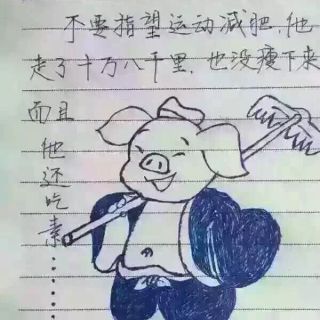 不要指望运动减肥.他
走了十万八千里.也没瘦下来
而且他还吃素……